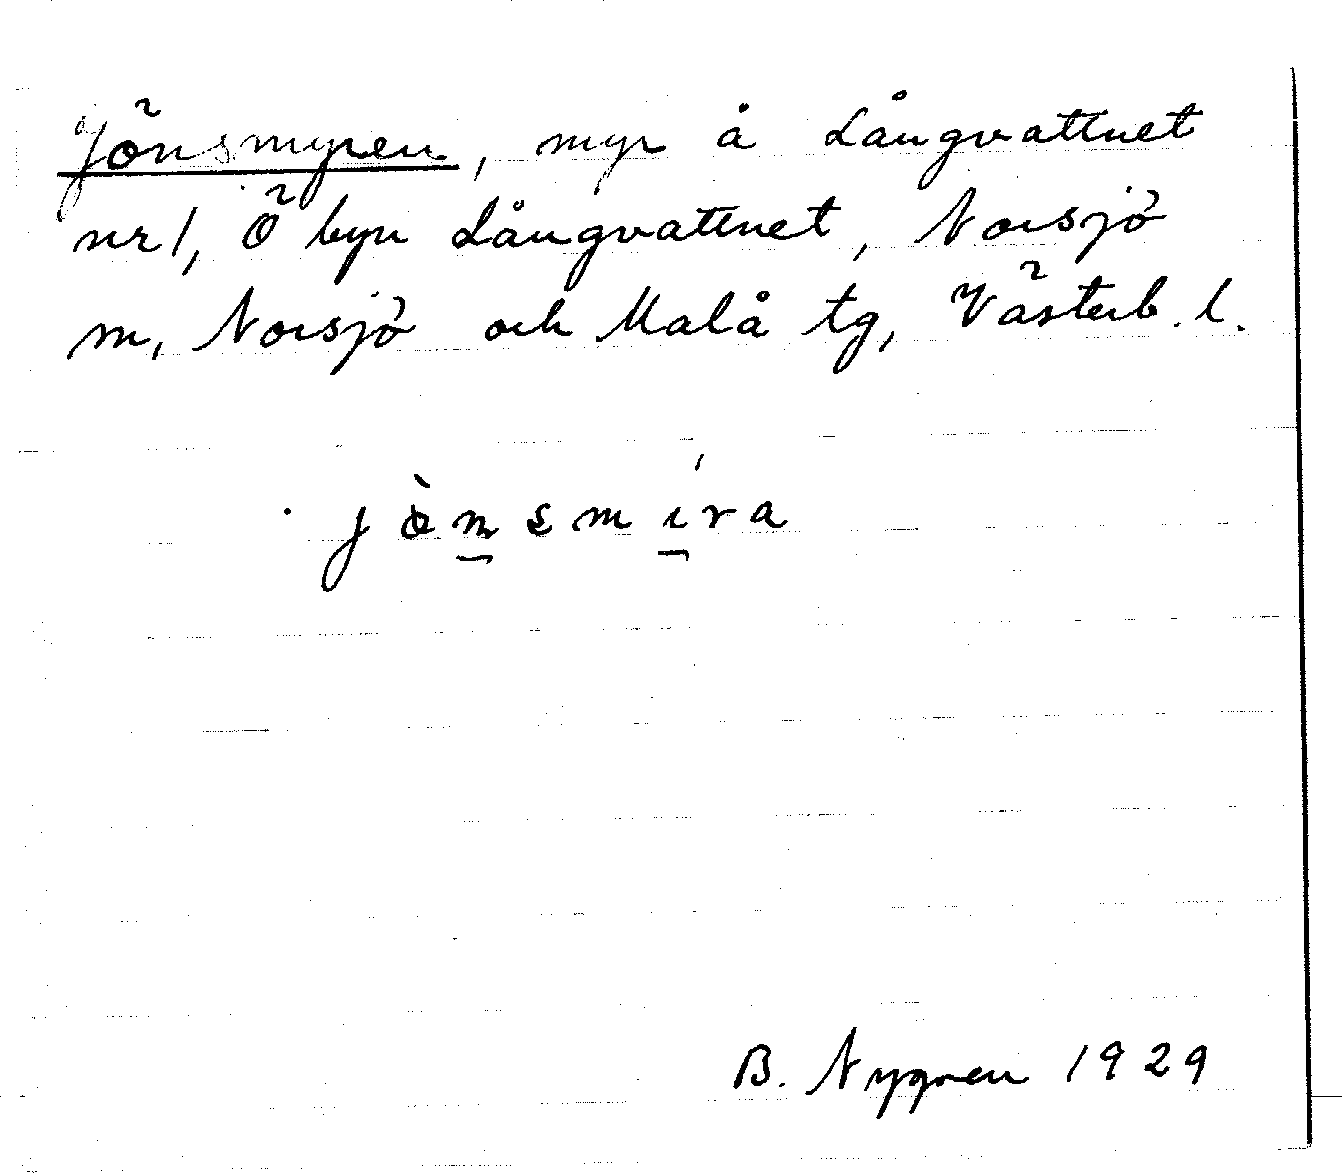 Jönsmyren, myr å Långvattnet
nr 1, Ö byn Långvattnet, Norsjö
m, Norsjö och Malå tg, Västerb. l.
jònsmíra
B. Nygren 1929